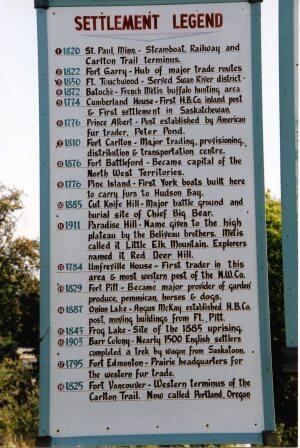 SETTLEMENT LEGEND
1 1820 St. Paul, Minn. - Steamboat, Railway and
Carlton Trail terminus.
2 1822 Fort Garry - Hub of major trade routes
3 1850 Ft. Touchwood - Served Swan River district
4 1872 Batoche - French Metis buffalo hunting area
5 1774 Cumberland House - First H.B.Co. inland post
& First settlement in Saskatchewan.
6 1776 Prince Albert - Post established by American
fur trader, Peter Pond.
7 1810 Fort Carlton - Major trading, provisioning,
distribution & transportation centre.
8 1876 Fort Battleford - Became capital of the
North West Territories.
9 1776 Pine Island - First York boats built here
to carry furs to Hudson Bay.
10 1885 Cut Knife Hill - Major battle ground and
burial site of Chief Big Bear.
11 1911 Paradise Hill - Name given to the high
plateau by the Beliveau brothers. Metis
called it Little Elk Mountain. Explorers
named it Red Deer Hill.
12 1784 Umfreville House - First trader in this
area & most western post of the N.W.Co.
13 1829 Fort Pitt - Became major provider of garden
produce, pemmican, horses & dogs.
14 1887 Onion Lake - Angus McKay established H.B.Co.
post, moving buildings from Ft. Pitt.
15 1843 Frog Lake - Site of the 1885 uprising
16 1903 Barr Colony - Nearly 1500 English settlers
completed a trek by wagon from Saskatoon.
17 1795 Fort Edmonton - Prairie headquarters for
the western fur trade.
18 1825 Fort Vancouver - Western terminus of the
Carlton Trail. Now called Portland, Oregon